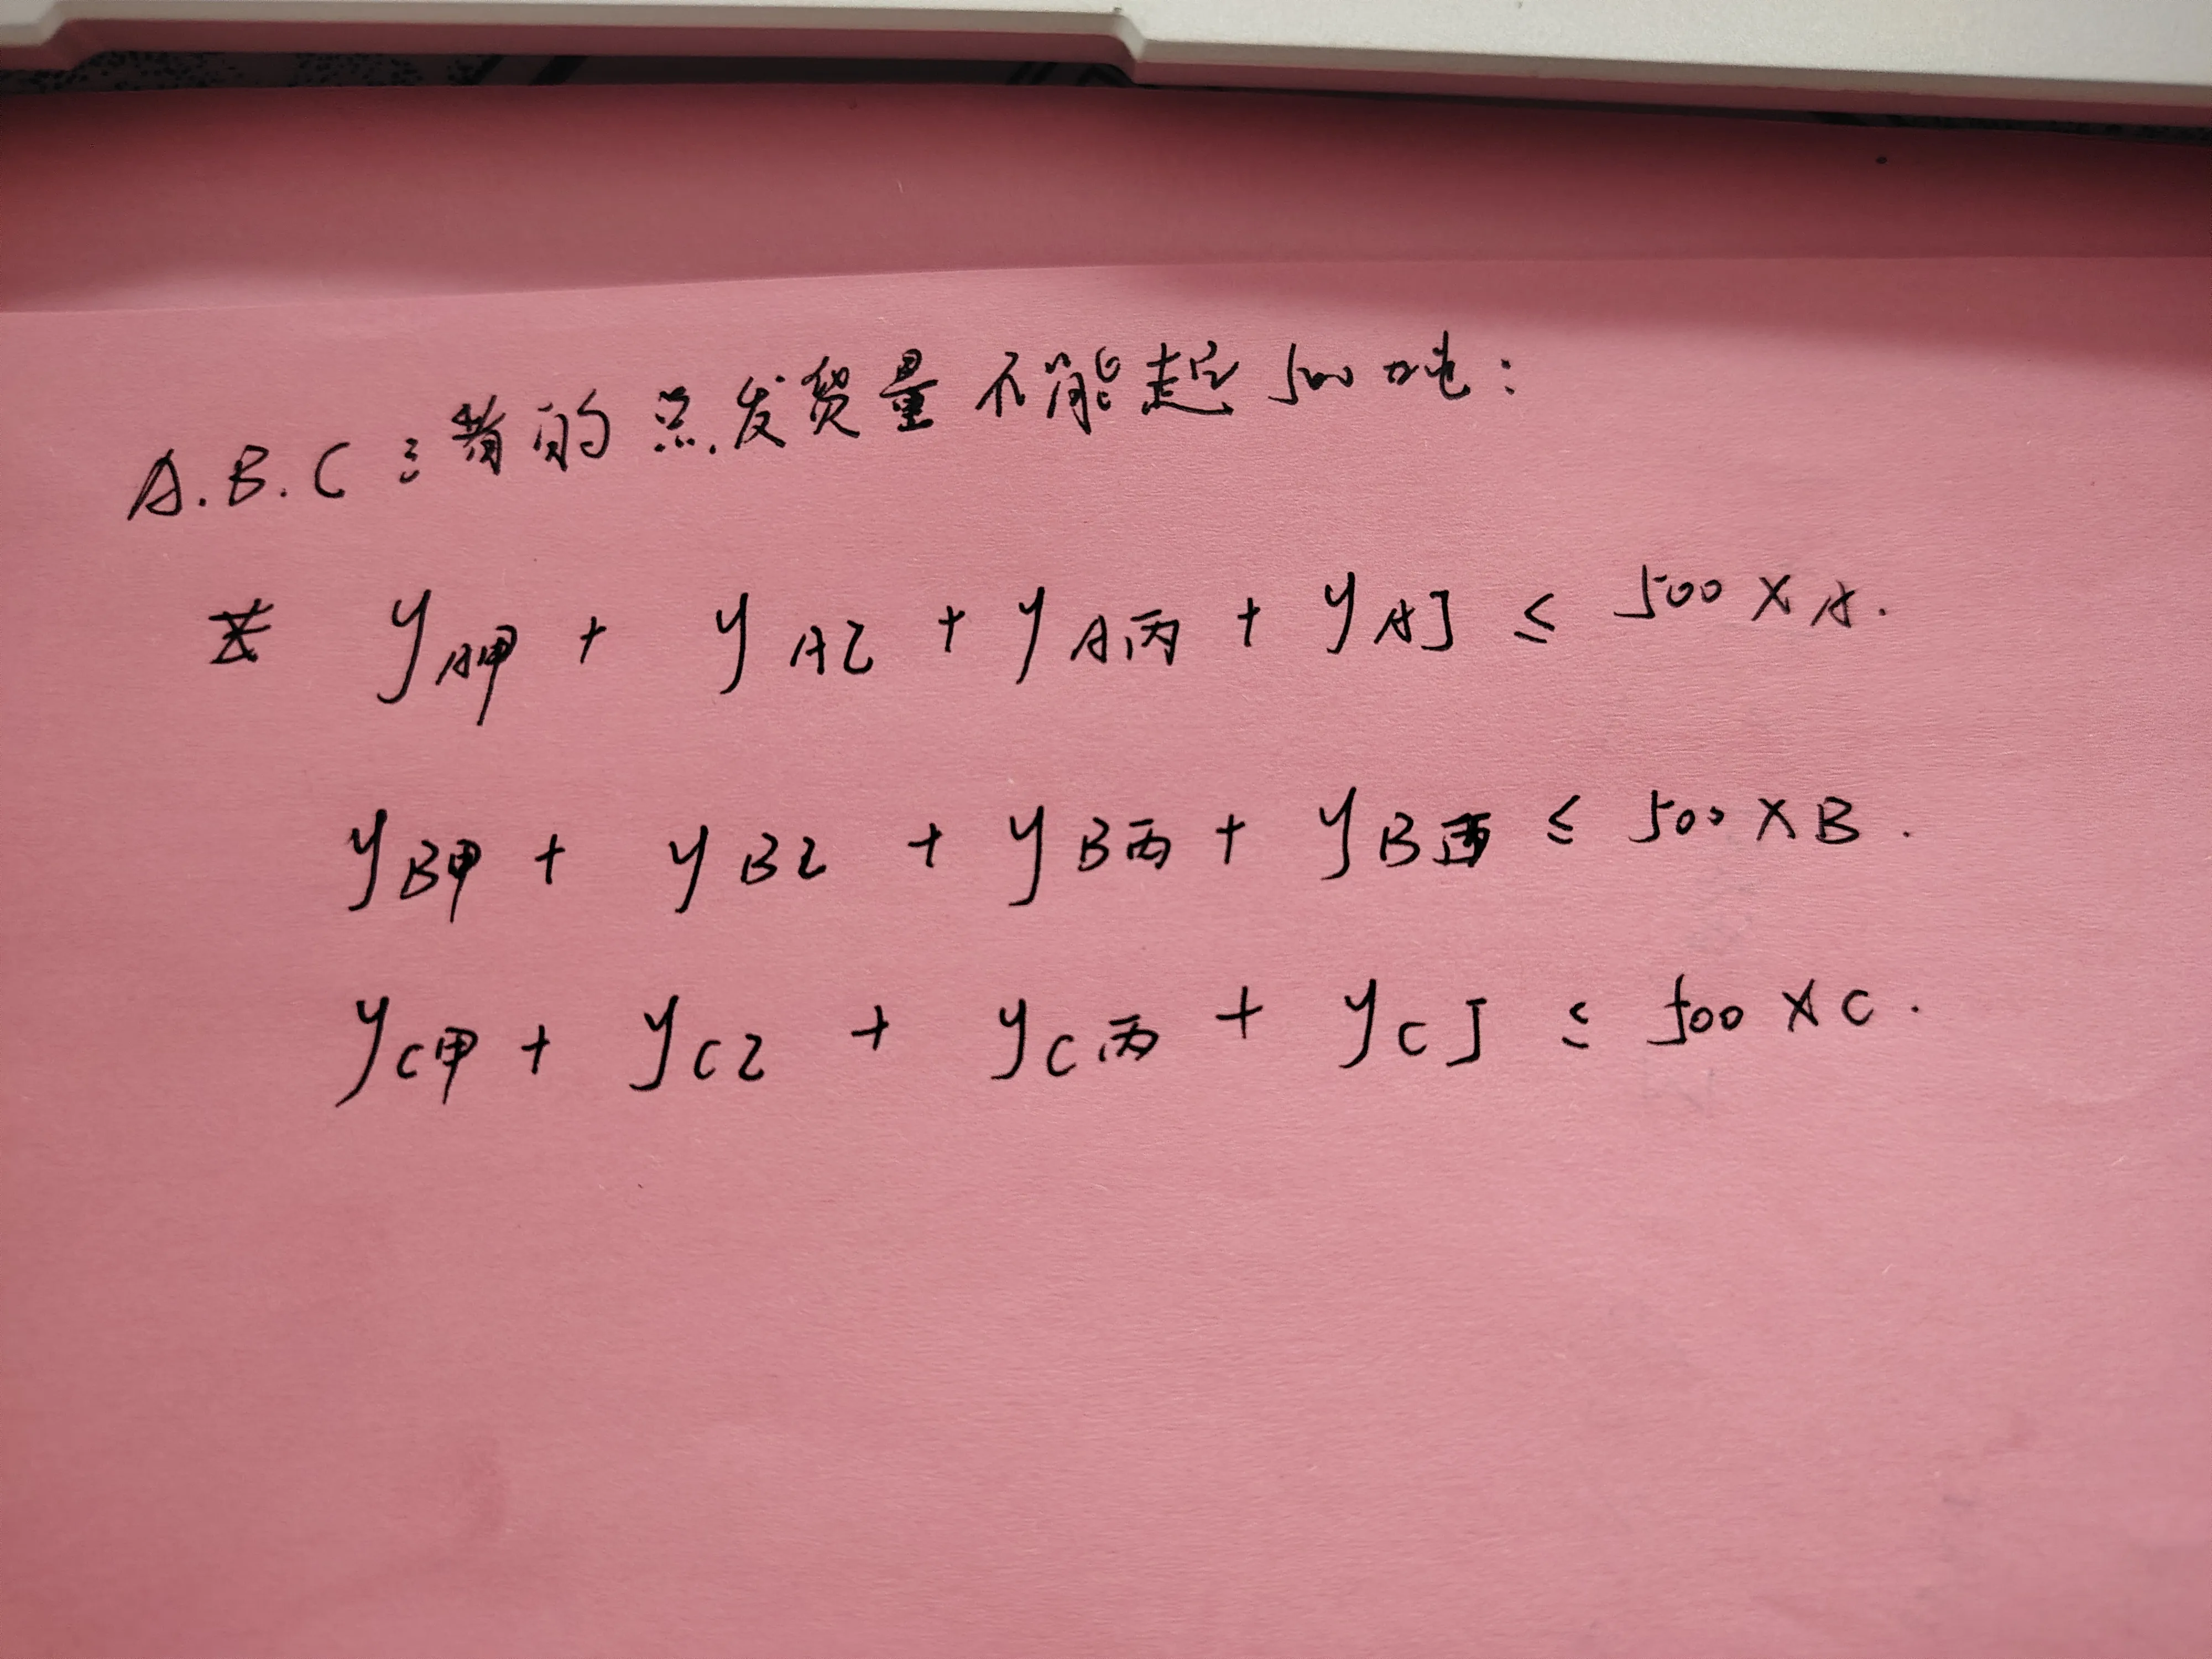 A.B.C三者的总发货量不能超500吨:
y A甲 + y A乙 + y A丙 + y A丁 ≤ 500 X A.
y B甲 + y B乙 + y B丙 + y B ≤ 500 X B.
y C甲 + y C乙 + y C丙 + y C丁 ≤ 500 X C.